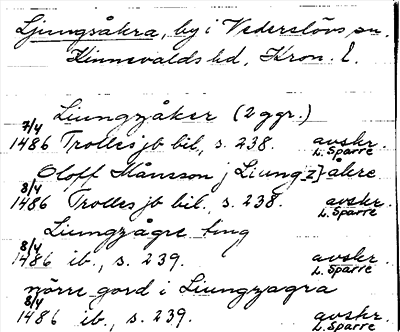 Ljungsåkra, by i Vederslövs sn.
Kinnevalds hd, Kron. l.
Liungzåker (2 ggr.)
7/4 1486 Trolles jb bil, s. 238. avskr. L. Sparre
Oloff Månsson j Liungz}åkre
8/4 1486 Trolles jb bil., s. 238. avskr. L. Sparre
Liungzågre ting
8/4 1486 ib., s. 239. avskr. L. Sparre
nörre gord i Liungzagra
8/4 1486 ib., s. 239. avskr. L. Sparre